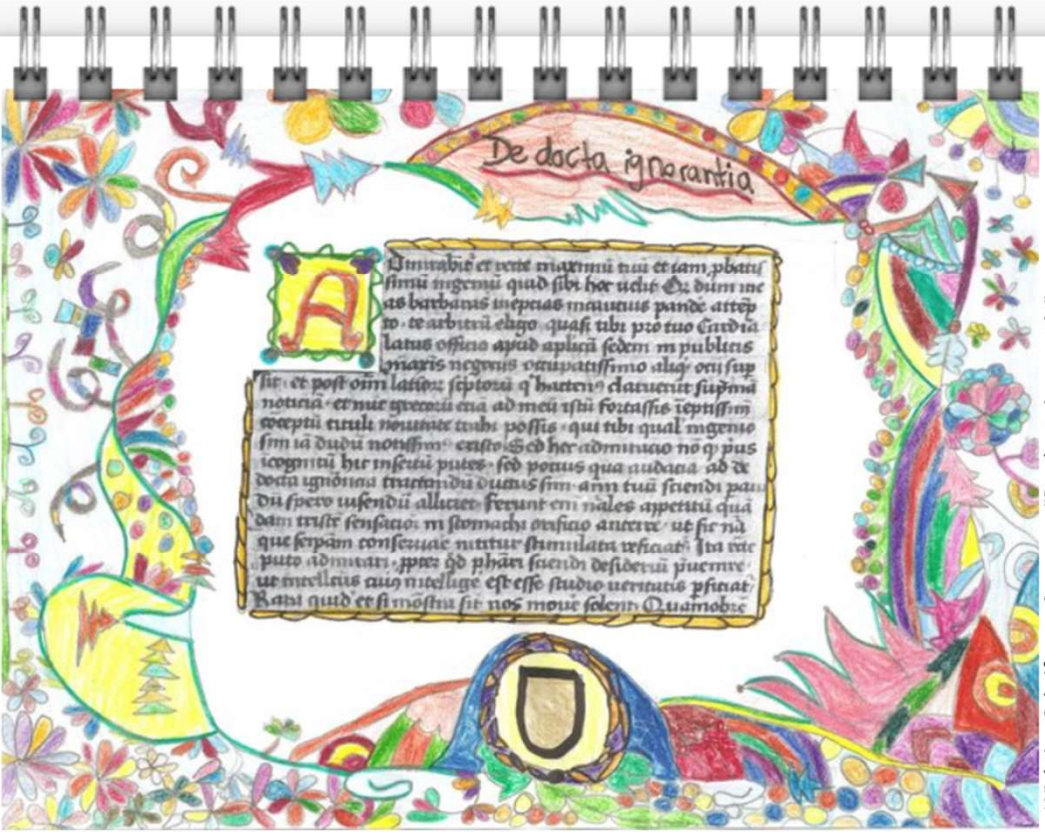 De docta ignorantia
A
Dmirabit et recte maximu tuu et iam pbatis
simu ingeniu quid sibi hoc uelit Qz dum me
as barbaras ineptias incautius pande attep
to te arbitru eligo quasi tibi pro tuo Cardia
latus officio apud aplica sedem in publicis
maxis negocus occupatissimo aliq ocii sup
sit et post oim latior sciptoru q hacten claruerut supma
noticia et nuc grecoru etia ad meu istu fortassis ieptissim
coceptu tituli nouitate trahi possis qui tibi qual ingenio
sim ia dudu notissim existo Sed hec admiracio no q pus
icognitu hic insertu putes sed pocius qua audacia ad de
docta ignoracia tractandu ductus sim anim tuu sciendi
du spero uisendu alliciet Ferunt em nales appetitu qua
dam triste sensacio in stomachi orificio anteire ut sic na
que seipam conseruare nititur stimulata reficiat Ita
puto admirari ppter qd phari sciendi desideriu puenire
ut intellectus cuius intellige est esse studio ueritatis pficiat
Rara quid et si mostra sit nos moue solent Quamobre